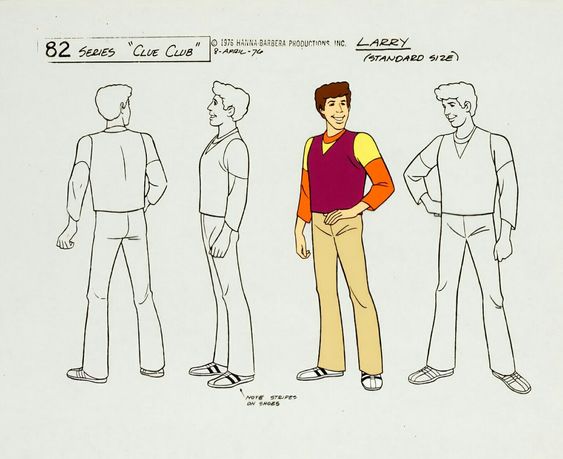 82 SERIES "CLUE CLUB"
© 1976 HANNA-BARBERA PRODUCTIONS, INC.
8-APRIL-76
LARRY
(STANDARD SIZE)
NOTE STRIPES
ON SHOES